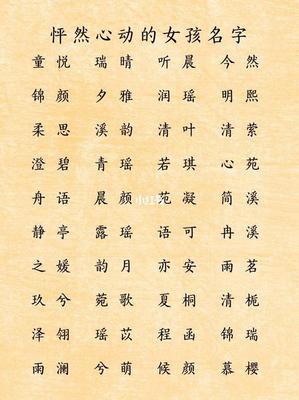 怦然心动的女孩名字
童悦 瑞晴 听晨 今然
锦颜 夕雅 润瑶 明熙
柔思 溪韵 清叶 清萦
澄碧 青瑶 若琪 心苑
舟语 晨颜 苑凝 简溪
静亭 露瑶 语可 冉溪
之媛 韵月 亦安 雨茗
玖兮 菀歌 夏桐 清栀
泽翎 瑶苡 程函 锦瑞
雨澜 兮萌 候颜 慕樱